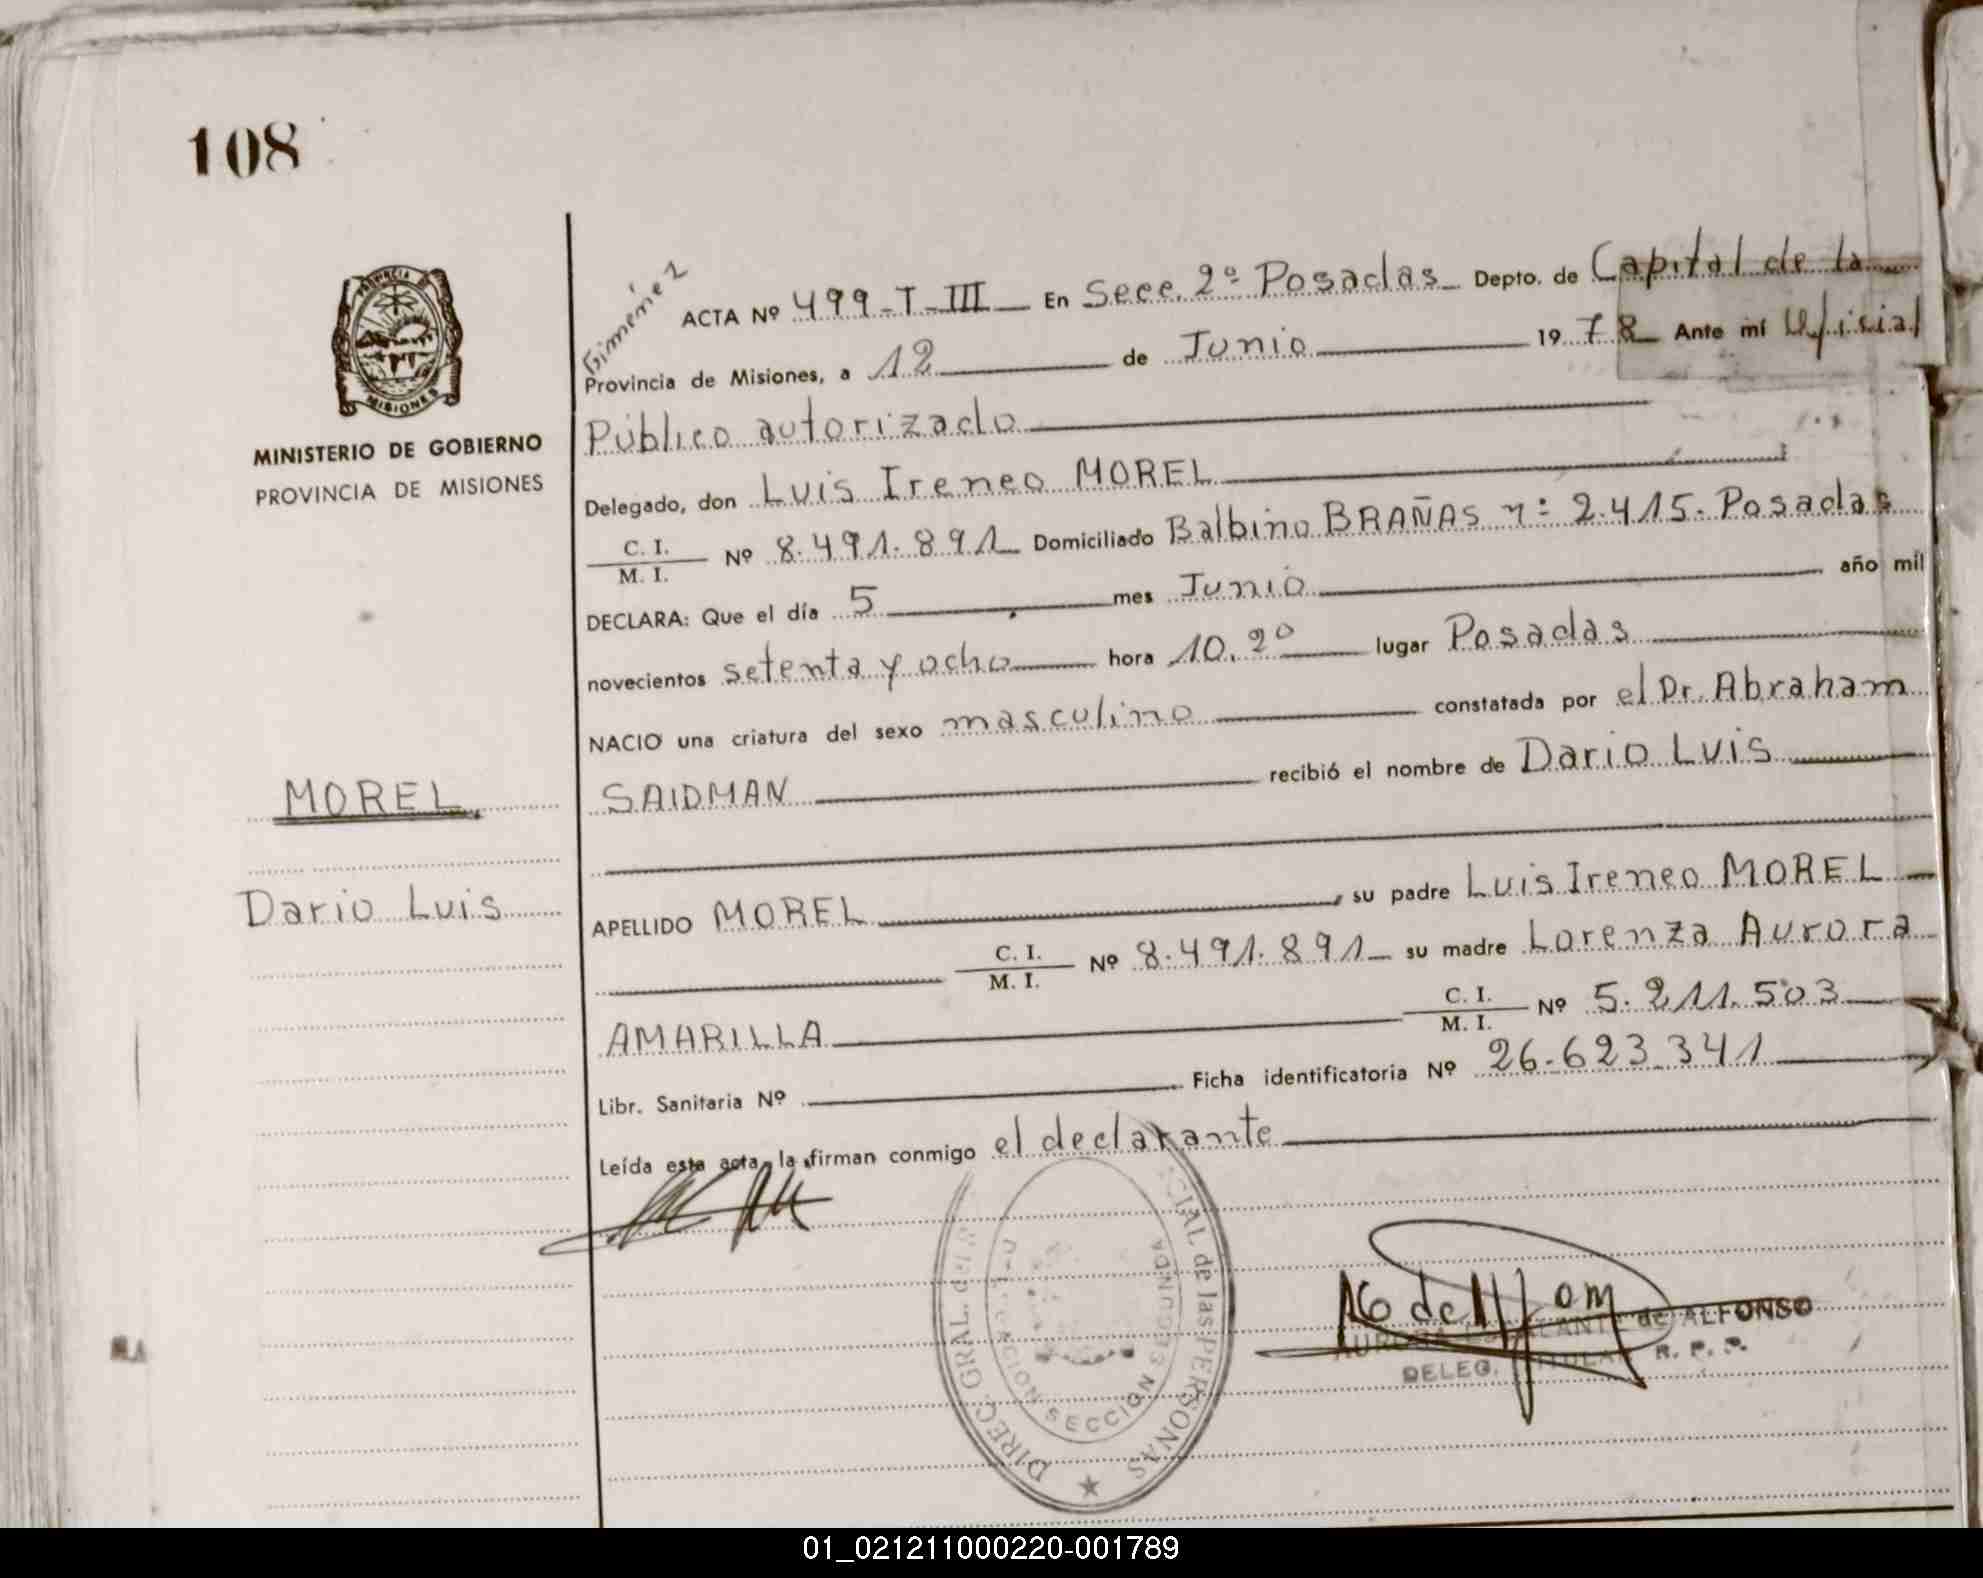 108
PROVINCIA
MISIONES
MINISTERIO DE GOBIERNO
PROVINCIA DE MISIONES
MOREL
Dario Luis
Gimenez
ACTA Nº 499-T-III En Secc. 2º Posadas Depto. de Capital de la
Provincia de Misiones, a 12 de Junio 1978 Ante mí Oficial
Público autorizado
Delegado, don Luis Ireneo MOREL
C. I.
M. I. Nº 8.491.891 Domiciliado Balbino BRAÑAS nº 2.415. Posadas
DECLARA: Que el día 5 mes Junio año mil
novecientos setenta y ocho hora 10.20 lugar Posadas
NACIO una criatura del sexo masculino constatada por el Dr. Abraham
SAIDMAN recibió el nombre de Dario Luis
APELLIDO MOREL, su padre Luis Ireneo MOREL
C. I.
M. I. Nº 8.491.891 su madre Lorenza Aurora
AMARILLA C. I.
M. I. Nº 5.211.503
Libr. Sanitaria Nº Ficha identificatoria Nº 26.623.341
Leída esta acta, la firman conmigo el declarante
DIREC. GRAL. del CIAL de las PERSONAS
SECCION SEGUNDA
de ALFONSO
DELEG. TITULAR R. P. P.
01_021211000220-001789